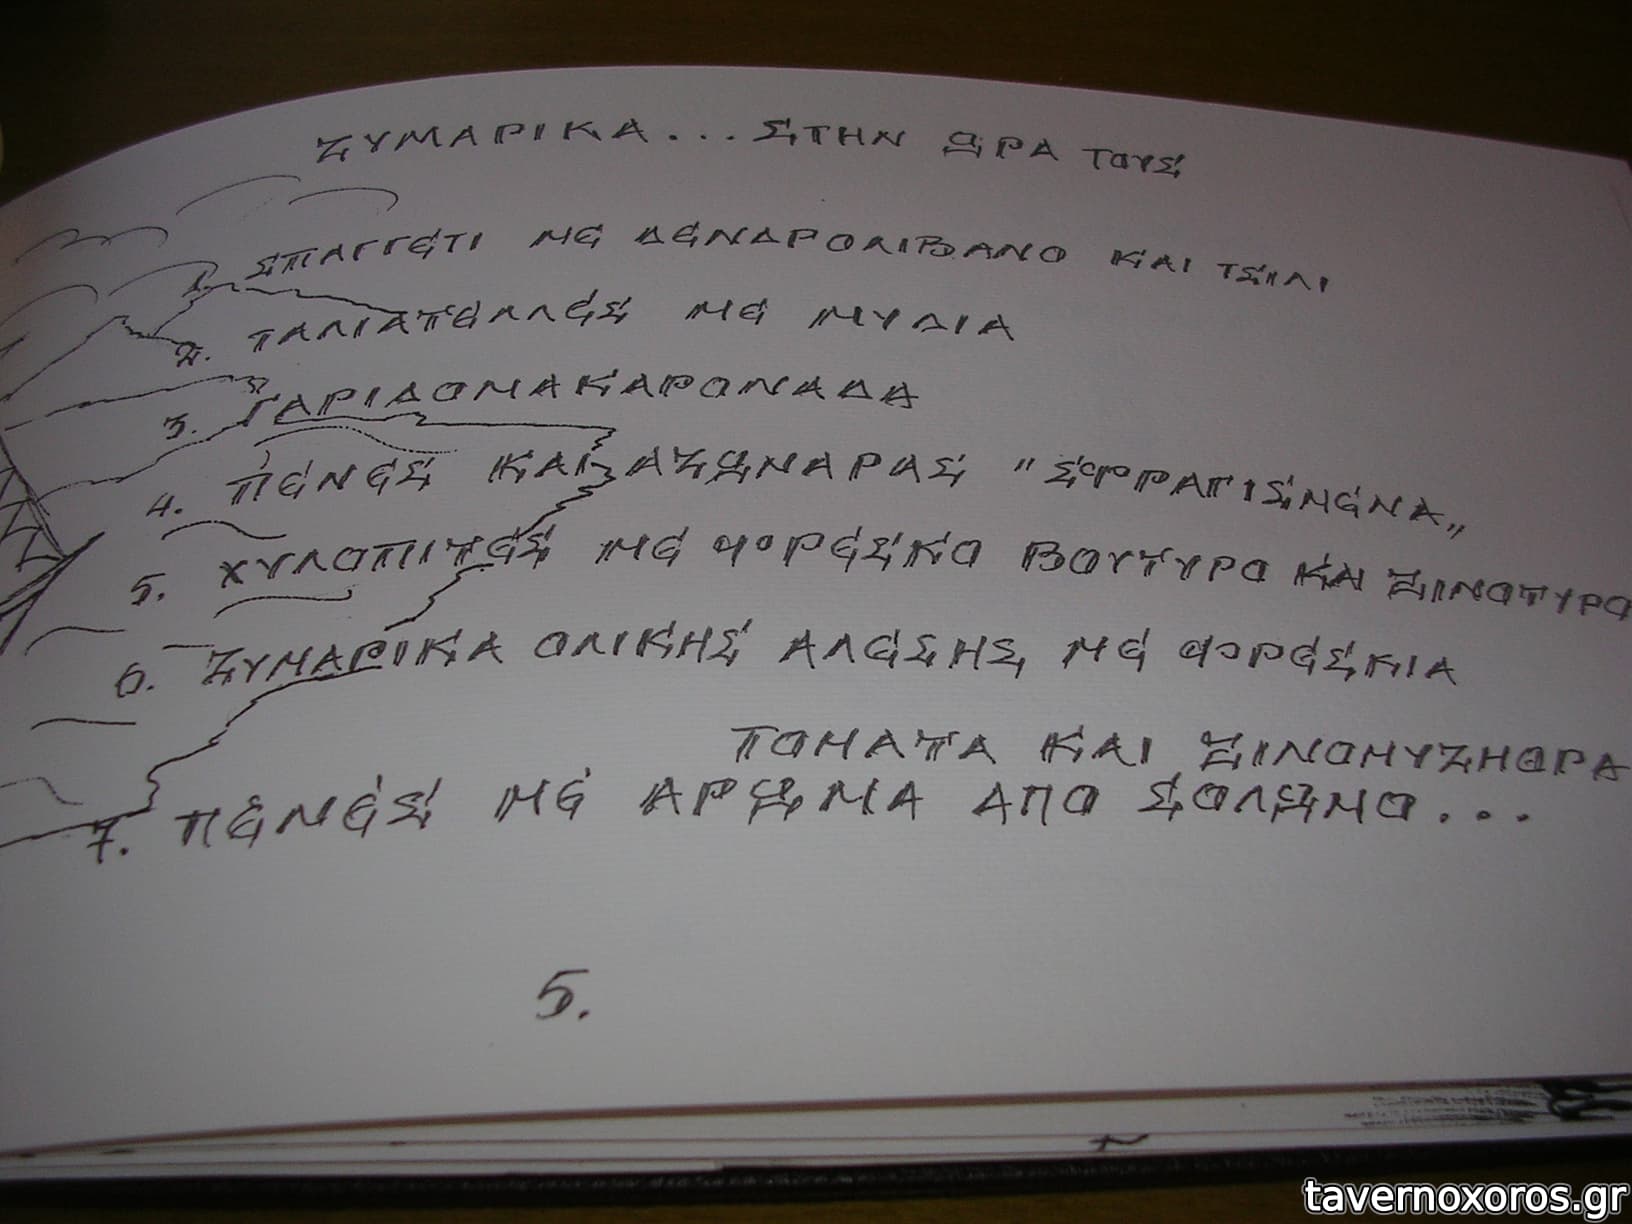 ΖΥΜΑΡΙΚΑ... ΣΤΗΝ ΩΡΑ ΤΟΥΣ
1. ΣΠΑΓΓΕΤΙ ΜΕ ΔΕΝΔΡΟΛΙΒΑΝΟ ΚΑΙ ΤΣΙΛΙ
2. ΤΑΛΙΑΤΕΛΛΕΣ ΜΕ ΜΥΔΙΑ
3. ΓΑΡΙΔΟΜΑΚΑΡΟΝΑΔΑ
4. ΠΕΝΕΣ ΚΑΙ ΛΑΖΩΝΑΡΑΣ "ΣΦΡΑΓΙΣΜΕΝΑ„
5. ΧΥΛΟΠΙΤΕΣ ΜΕ ΦΡΕΣΚΟ ΒΟΥΤΥΡΟ ΚΑΙ ΞΙΝΟΤΥΡΟ
6. ΖΥΜΑΡΙΚΑ ΟΛΙΚΗΣ ΑΛΕΣΗΣ ΜΕ ΦΡΕΣΚΙΑ
ΤΟΜΑΤΑ ΚΑΙ ΞΙΝΟΜΥΖΗΘΡΑ
7. ΠΕΝΕΣ ΜΕ ΑΡΩΜΑ ΑΠΟ ΣΟΛΩΜΟ...
5.
tavernoxoros.gr